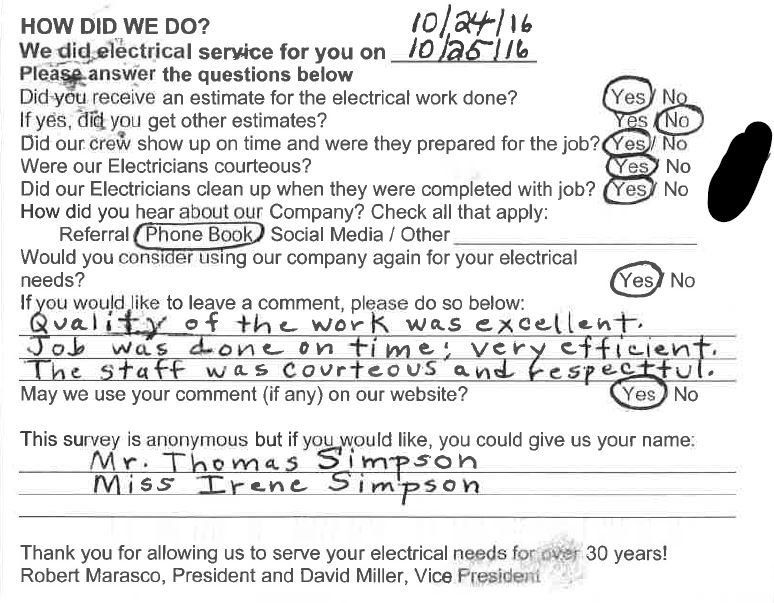 HOW DID WE DO? 10/24/16
We did electrical service for you on 10/25/16
Please answer the questions below
Did you receive an estimate for the electrical work done? Yes / No
If yes, did you get other estimates? Yes / No
Did our crew show up on time and were they prepared for the job? Yes / No
Were our Electricians courteous? Yes / No
Did our Electricians clean up when they were completed with job? Yes / No
How did you hear about our Company? Check all that apply:
Referral / Phone Book / Social Media / Other
Would you consider using our company again for your electrical
needs? Yes / No
If you would like to leave a comment, please do so below:
Quality of the work was excellent.
Job was done on time; very efficient.
The staff was courteous and respectful.
May we use your comment (if any) on our website? Yes / No
This survey is anonymous but if you would like, you could give us your name:
Mr. Thomas Simpson
Miss Irene Simpson
Thank you for allowing us to serve your electrical needs for over 30 years!
Robert Marasco, President and David Miller, Vice President